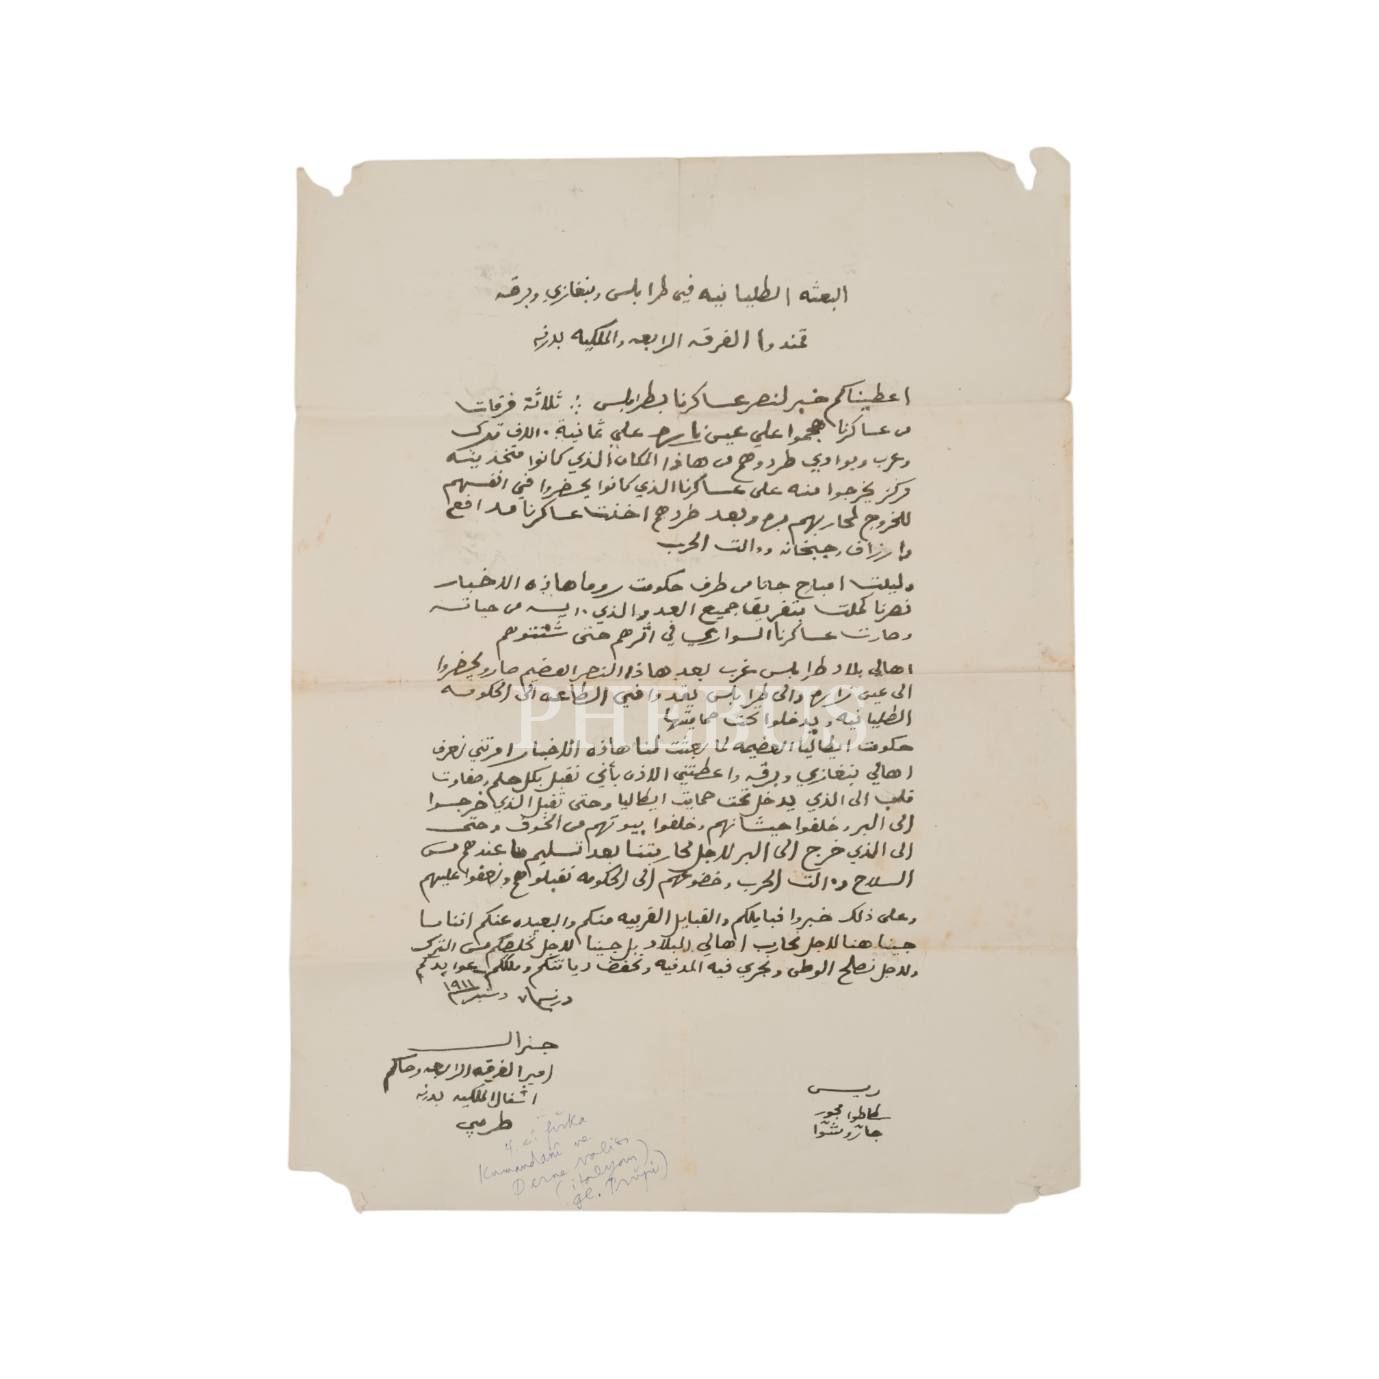 البعثه الطليانيه في طرابلس وبنغازي وبرقه
قمندوا الفرقه الرابعه والملكيه بدرنه
اعطيناكم خبر لنصر عساكرنا بطرابلس ثلاثة فرقات
من عساكرنا هجموا علي عين زاره علي ثمانية الاف ترك
وعرب وبوادي طردوهم من هاذا المكان الذي كانوا متخذينه
مركز يخرجوا منه على عساكرنا الذي كانوا يحضروا في انفسهم
للخروج لمحاربهم بره وبعد طردهم اخذت عساكرنا مدافع
وارزاق وجبخانه والت الحرب
وليلت امبارح جانا من طرف حكومت روما هاذه الاخبار
نصرنا كملت بتفريق جميع العدو والذي من حياته
وصارت عساكرنا السواري في اثرهم حتى شتتوهم
اهالي بلاد طرابلس غرب بعد هاذا النصر العضيم صارو يحضروا
الى عين زاره والى طرابلس يقدوا في الطاعه الى الحكومه
الطليانيه ويدخلوا تحت حمايتها
PHEBUS
حكومت ايطاليا العضيمه لما بعتت لنا هاذه الاخبار امرتني نعرف
اهالي بنغازي وبرقه واعطتني الاذن بأني نقبل بكل حلم وصفاوت
قلب الى الذي يدخل تحت حمايت ايطاليا وحتى نقبل الذي خرجوا
الى البر وخلفوا حيشانهم وخلفوا بيوتهم من الخوف وحتى
الى الذي خرج الى البر لاجل محاربتنا بعد تسليم ما عندهم من
السلاح والت الحرب وخضوعهم الى الحكومه نقبلوهم ونعفوا عليهم
وعلى ذلك خبروا قبايلكم والقبايل القريبه منكم والبعيده عنكم اننا ما
جينا هنا لاجل نحارب اهالي البلاد بل جينا لاجل نخلصكم من الترك
ولاجل نصلح الوطن ونجري فيه المدنيه ونحفض ديانتكم وملككم عوايدكم
درنه دسمبر ١٩١١
جنرال
امير الفرقه الرابعه وحاكم
اشغال الملكيه بدرنه
طرمبي
ريس
4 cü fırka
Kumandanı ve
Derne valisi
(italyan)
gl.